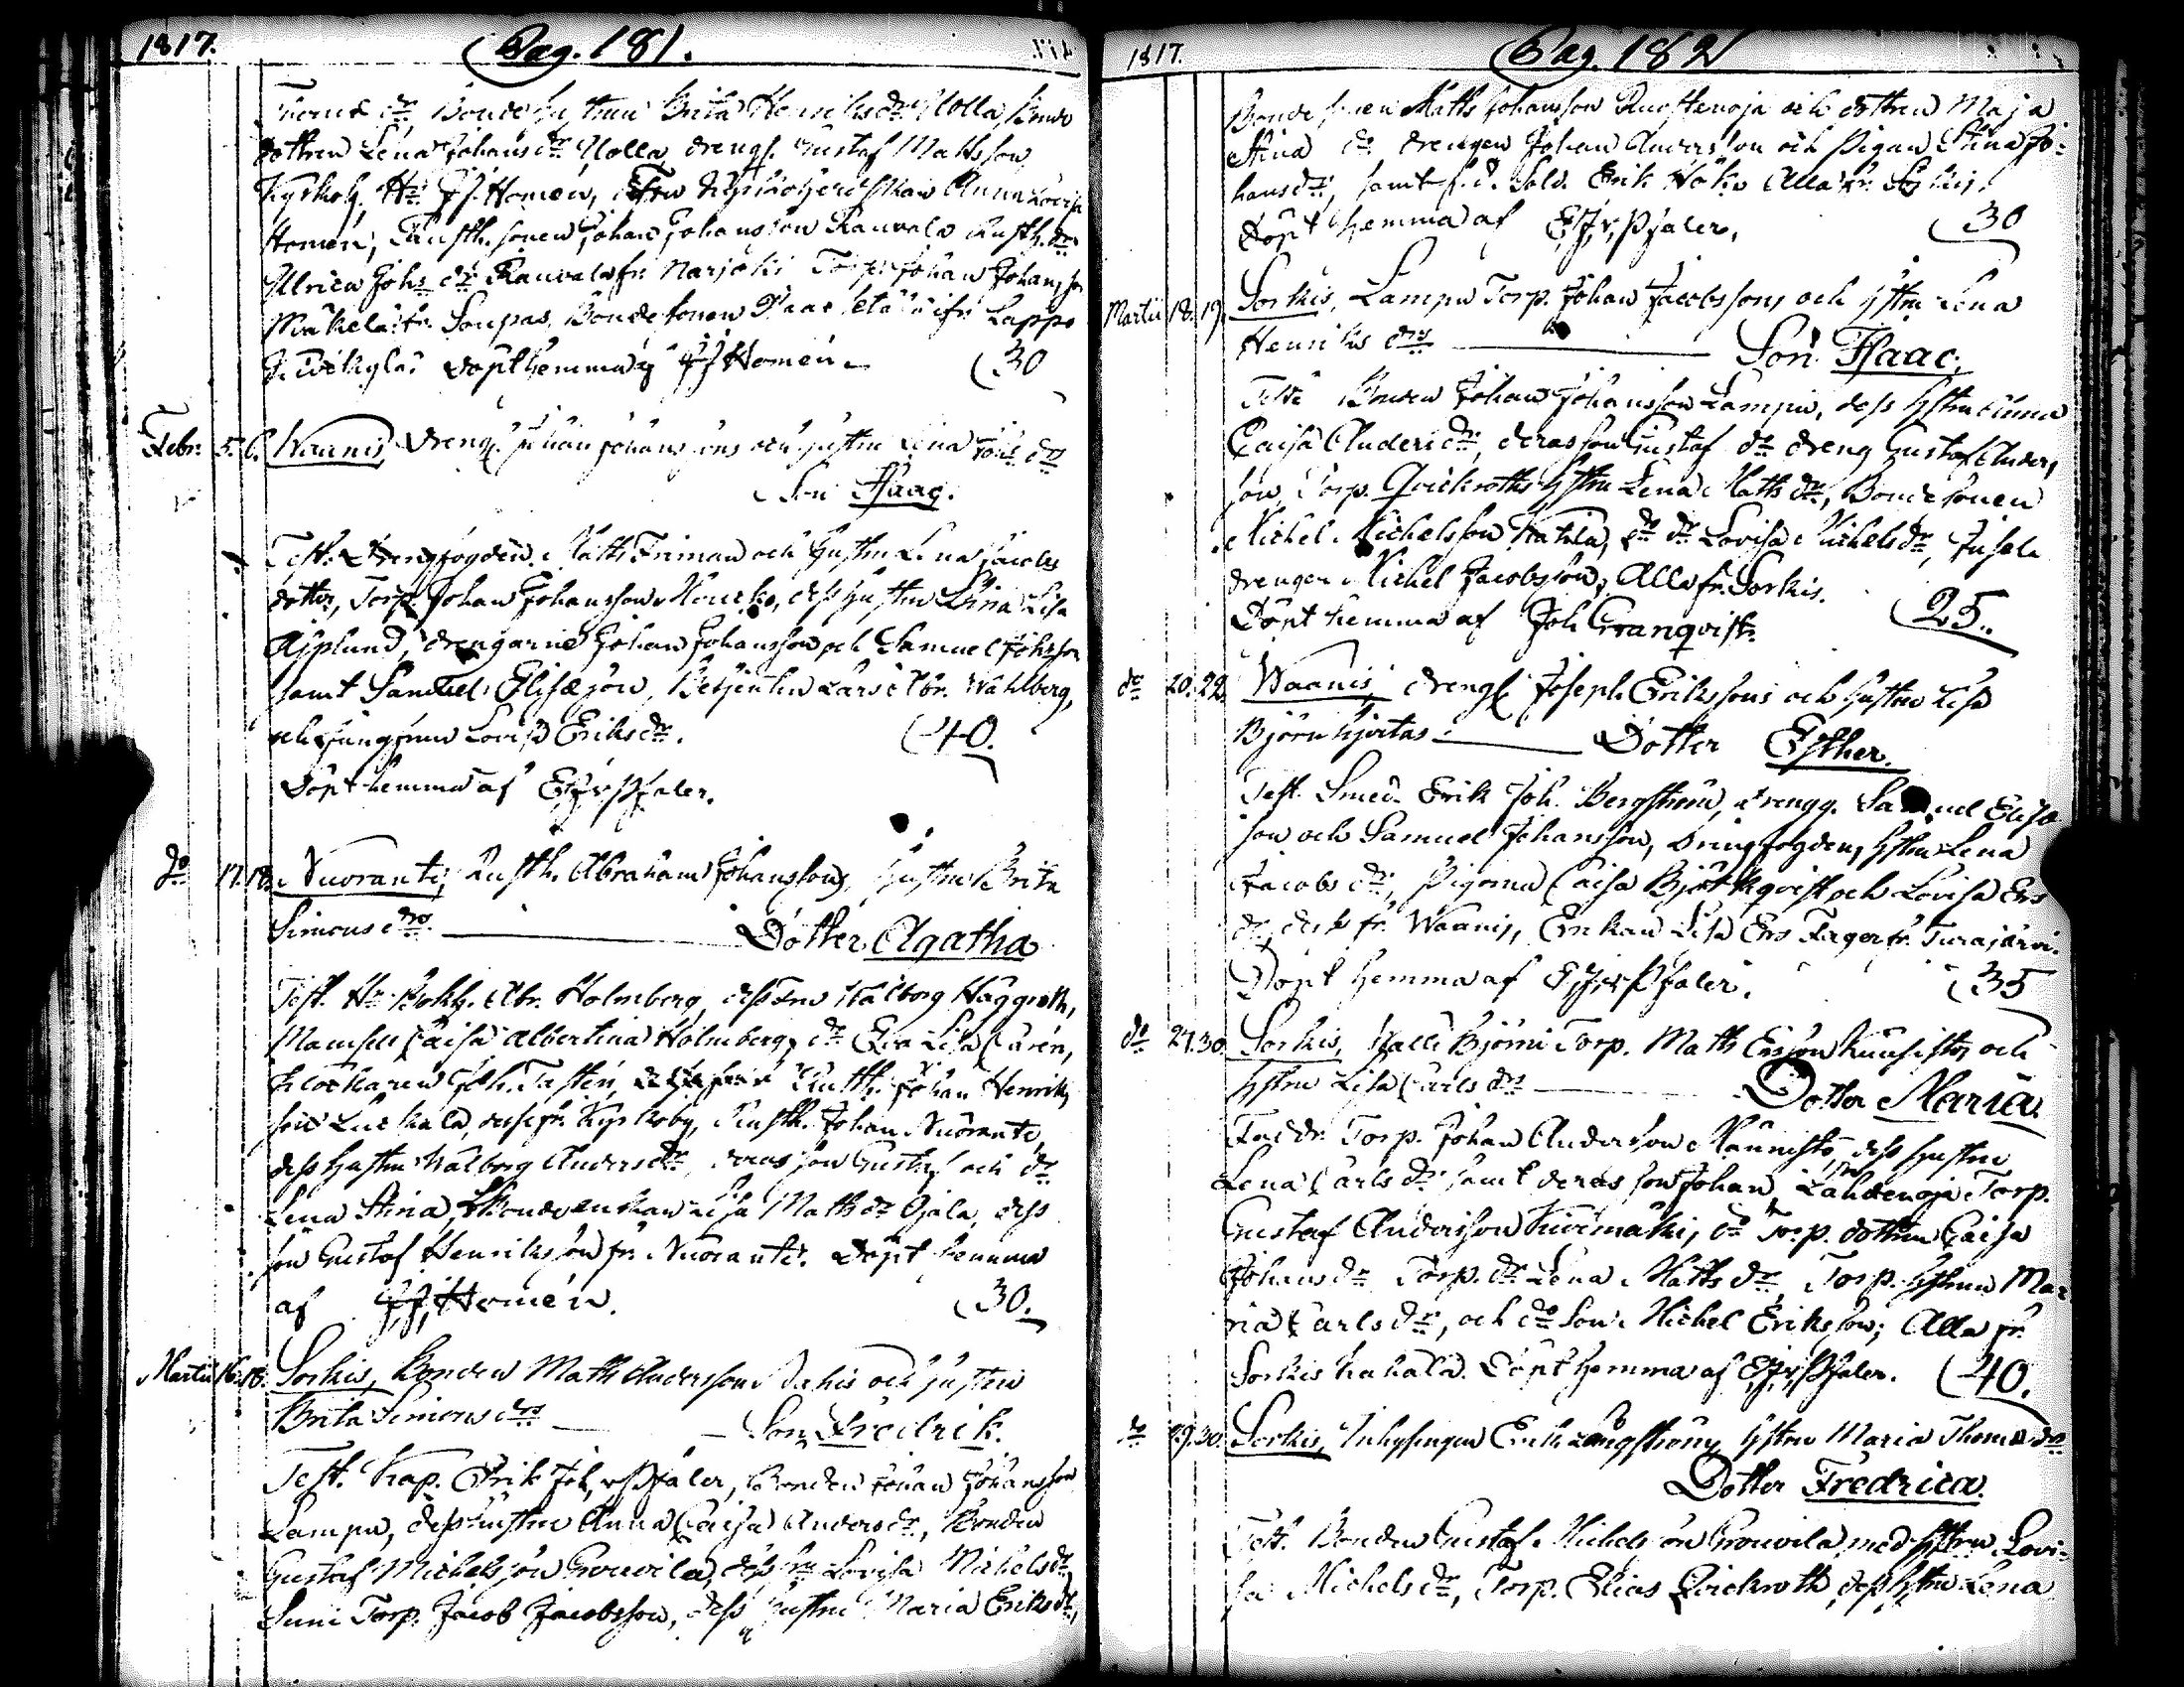 1817. Pag. 181.
Bonde hustrun Brita Henriksdr Nolla, Bonde
dottren Lena Johansdr Nolla drengs. Gustaf Mattsson
Kyrkoh. Hr J.J. Homén, Fru Anna Lovisa
Homén, Rusth. sonen Johan Johansson Rauvala Rusth. dr
Ulrica Johs dr Rauvala fr. Narjoki Torp. Johan Johansson
Mäkelä fr. Soupas, Bondesonen Isaac fr. Lappo
Döpt hemma af JJ Homén. 30
Febr. 5. 6. Waanis, Dreng. Johan Johanssons och hustru Lena Johs drs
Son Isaac.
Test. Drengfogden Matts Friman och Hustru Lena Jacobs
dotter, Torp. Johan Johansson dess hustru Stina Lisa
Asplund, drengarne Johan Johansson och Samuel Johsson
samt Samuel Elisæson, Betjenten Lars Abr. Wahlberg,
och jungfrun Lovisa Eriksdr. 40.
Döpt hemma af E.J.v. Pfaler.
do 17. 18. Nuorante, Rusth. Abraham Johanssons, Hustru Brita
Simons drs Dotter Agatha
Test. Hr Bokh. Abr. Holmberg, dess Fru Walborg Häggroth,
Mamsell Caisa Albertina Holmberg, do Eva Lisa Carén,
Klockaren Joh. Tastén, Rusth. Johan Henriks
son Luckala, desse fr. Kyrkoby, Rusth. Johan Nuorante,
dess Hustru Walborg Andersdr, deras son Gustaf och dr
Lena Stina, Bondeenkan Lisa Mattsdr Ojala, dess
son Gustaf Henriksson fr. Nuorante. Döpt hemma
af J.J. Homén. 30.
Martii 16. 18. Sorkis, Bonden Matts Anderssons Jakis och hustru
Brita Simons drs Son Fredrik.
Test. Kap. Erik Joh. v Pfaler, Bonden Johan Johansson
Lampu, dess hustru Anna Caisa Andersdr, Bonden
Gustaf Michelsson Grouvila, dess hu Lovisa Michelsdr
Suni Torp. Jacob Jacobsson, dess hustru Maria Eriksdr,
1817. Pag. 182
Bonde sonen Matts Johansson Ruostenoja och dottren Maja
Stina do drengen Johan Andersson och Pigan Stina Jo-
hansdr, samt f.d. Sold. Erik Alla fr. Sorkis.
Döpt hemma af E.J.v. Pfaler. 30
Martii 18. 19. Sorkis, Lampu Torp. Johan Jacobssons och hstru Lena
Henriks drs Son Isaac.
Test. Bonden Johan Johansson Lampu, dess hstru Anna
Caisa Andersdr, deras son Gustaf do dreng Gustaf Anders
son, Torp. Qvickroths hstru Lena Mattsdr, Bonde sonen
Michel Michelsson Kattila, do dr Lovisa Michelsdr,
drengen Michel Jacobsson, Alla fr. Sorkis.
Döpt hemma af Joh Granqvist. 25.
do 20. 22. Waanis, drengs Joseph Erikssons och hustru Lisa
Björnhjertas Dotter Esther.
Test. Smed. Erik Joh. Bergström, drengg. Samuel Elisæ
son och Samuel Johansson, Drengfogdens hstru Lena
Jacobsdr, Pigorna Caisa Björkqvist och Lovisa Ers
dr, desse fr. Waanis, Enkan Lisa Ers Fager fr. Turajärvi.
Döpt hemma af E.J.v. Pfaler. 35
do 27. 30. Sorkis, Björni Torp. Matts Ersson Kuusistos och
hstru Lisa Carls drs Dotter Maria.
Faddr. Torp. Johan Andersson Männistö, dess hustru
Lena Carlsdr samt deras son Johan, Lähdenoja Torp.
Gustaf Andersson Kivimäki, do Torp. dottren Caisa
Johansdr Torp. dr Lena Mattsdr, Torp. hstrun Ma-
ria Carlsdr, och do son Michel Eriksson; Alla fr.
Sorkis hahala. Döpt hemma af E.J.v. Pfaler. 40.
do 29. 30. Sorkis, Inhysingen Erik Långströms hstru Maria Thomædrs
Dotter Fredrica.
Test. Bonden Gustaf Michelsson Grouvila med hstrun Lovi-
sa Michelsdr, Torp. Elias Qvickroth, dess hstru Lena